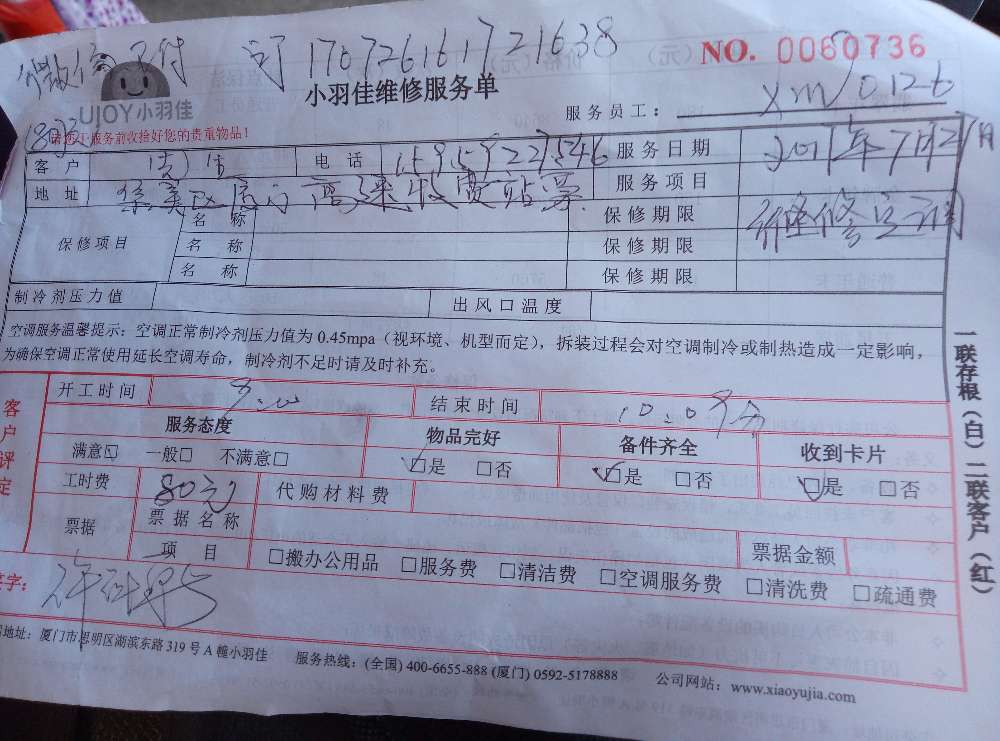 微信 付 176726161721638
NO. 0060736
UJOY小羽佳
小羽佳维修服务单
服务员工: xm 0126
请您于服务前收拾好您的贵重物品!
客户 电话 服务日期 年7月2 日
地址 集美区 高速收费站 服务项目
保修项目 名称 保修期限
名称 保修期限
名称 保修期限
制冷剂压力值 出风口温度
空调服务温馨提示:空调正常制冷剂压力值为0.45mpa(视环境、机型而定),拆装过程会对空调制冷或制热造成一定影响,
为确保空调正常使用延长空调寿命,制冷剂不足时请及时补充。
客户评定
开工时间 结束时间
服务态度 物品完好 备件齐全 收到卡片
满意□ 一般□ 不满意□ □是 □否 □是 □否 □是 □否
工时费 80元 代购材料费
票据 票据名称 票据金额
项目 □搬办公用品 □服务费 □清洁费 □空调服务费 □清洗费 □疏通费
字:
地址:厦门市思明区湖滨东路319号A幢小羽佳 服务热线:(全国) 400-6655-888 (厦门) 0592-5178888 公司网站:www.xiaoyujia.com
一联存根(白)二联客户(红)